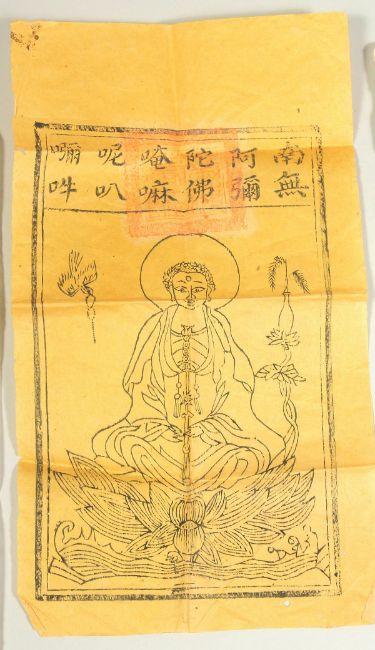 南無
阿彌
陀佛
唵嘛
呢叭
吽